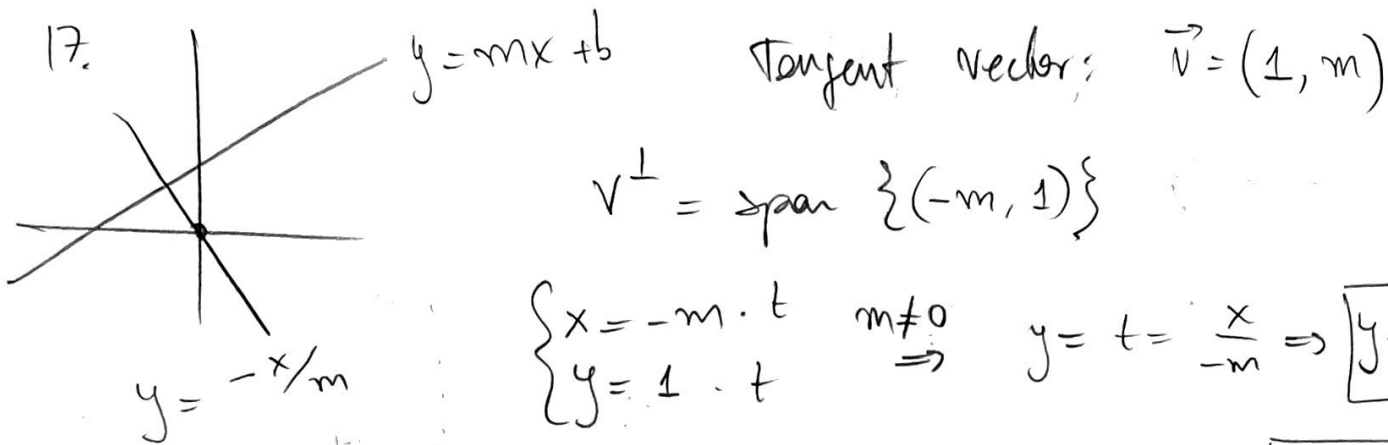 17. y = mx + b Tangent vector: v⃗ = (1, m)
v^⊥ = span {(-m, 1)}
{ x = -m · t m≠0 ⇒ y = t = x/-m ⇒ y
y = 1 · t
y = -x/m